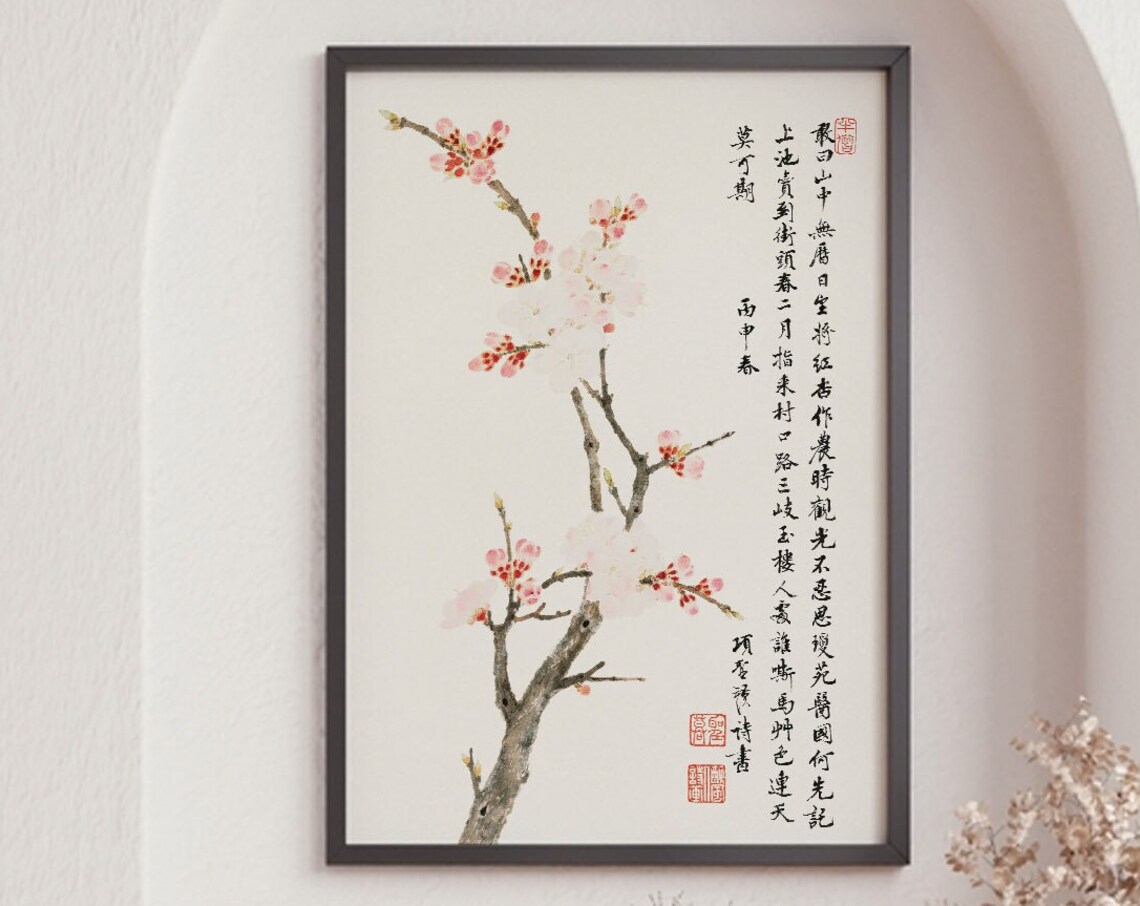 敢曰山中無曆日坐將紅杏作農時觀光不惡思瓊苑醫國何先記
上池賣到街頭春二月指來村口路三岐玉樓人處誰嘶馬艸色連天
莫可期 丙申春 項聖謨詩書